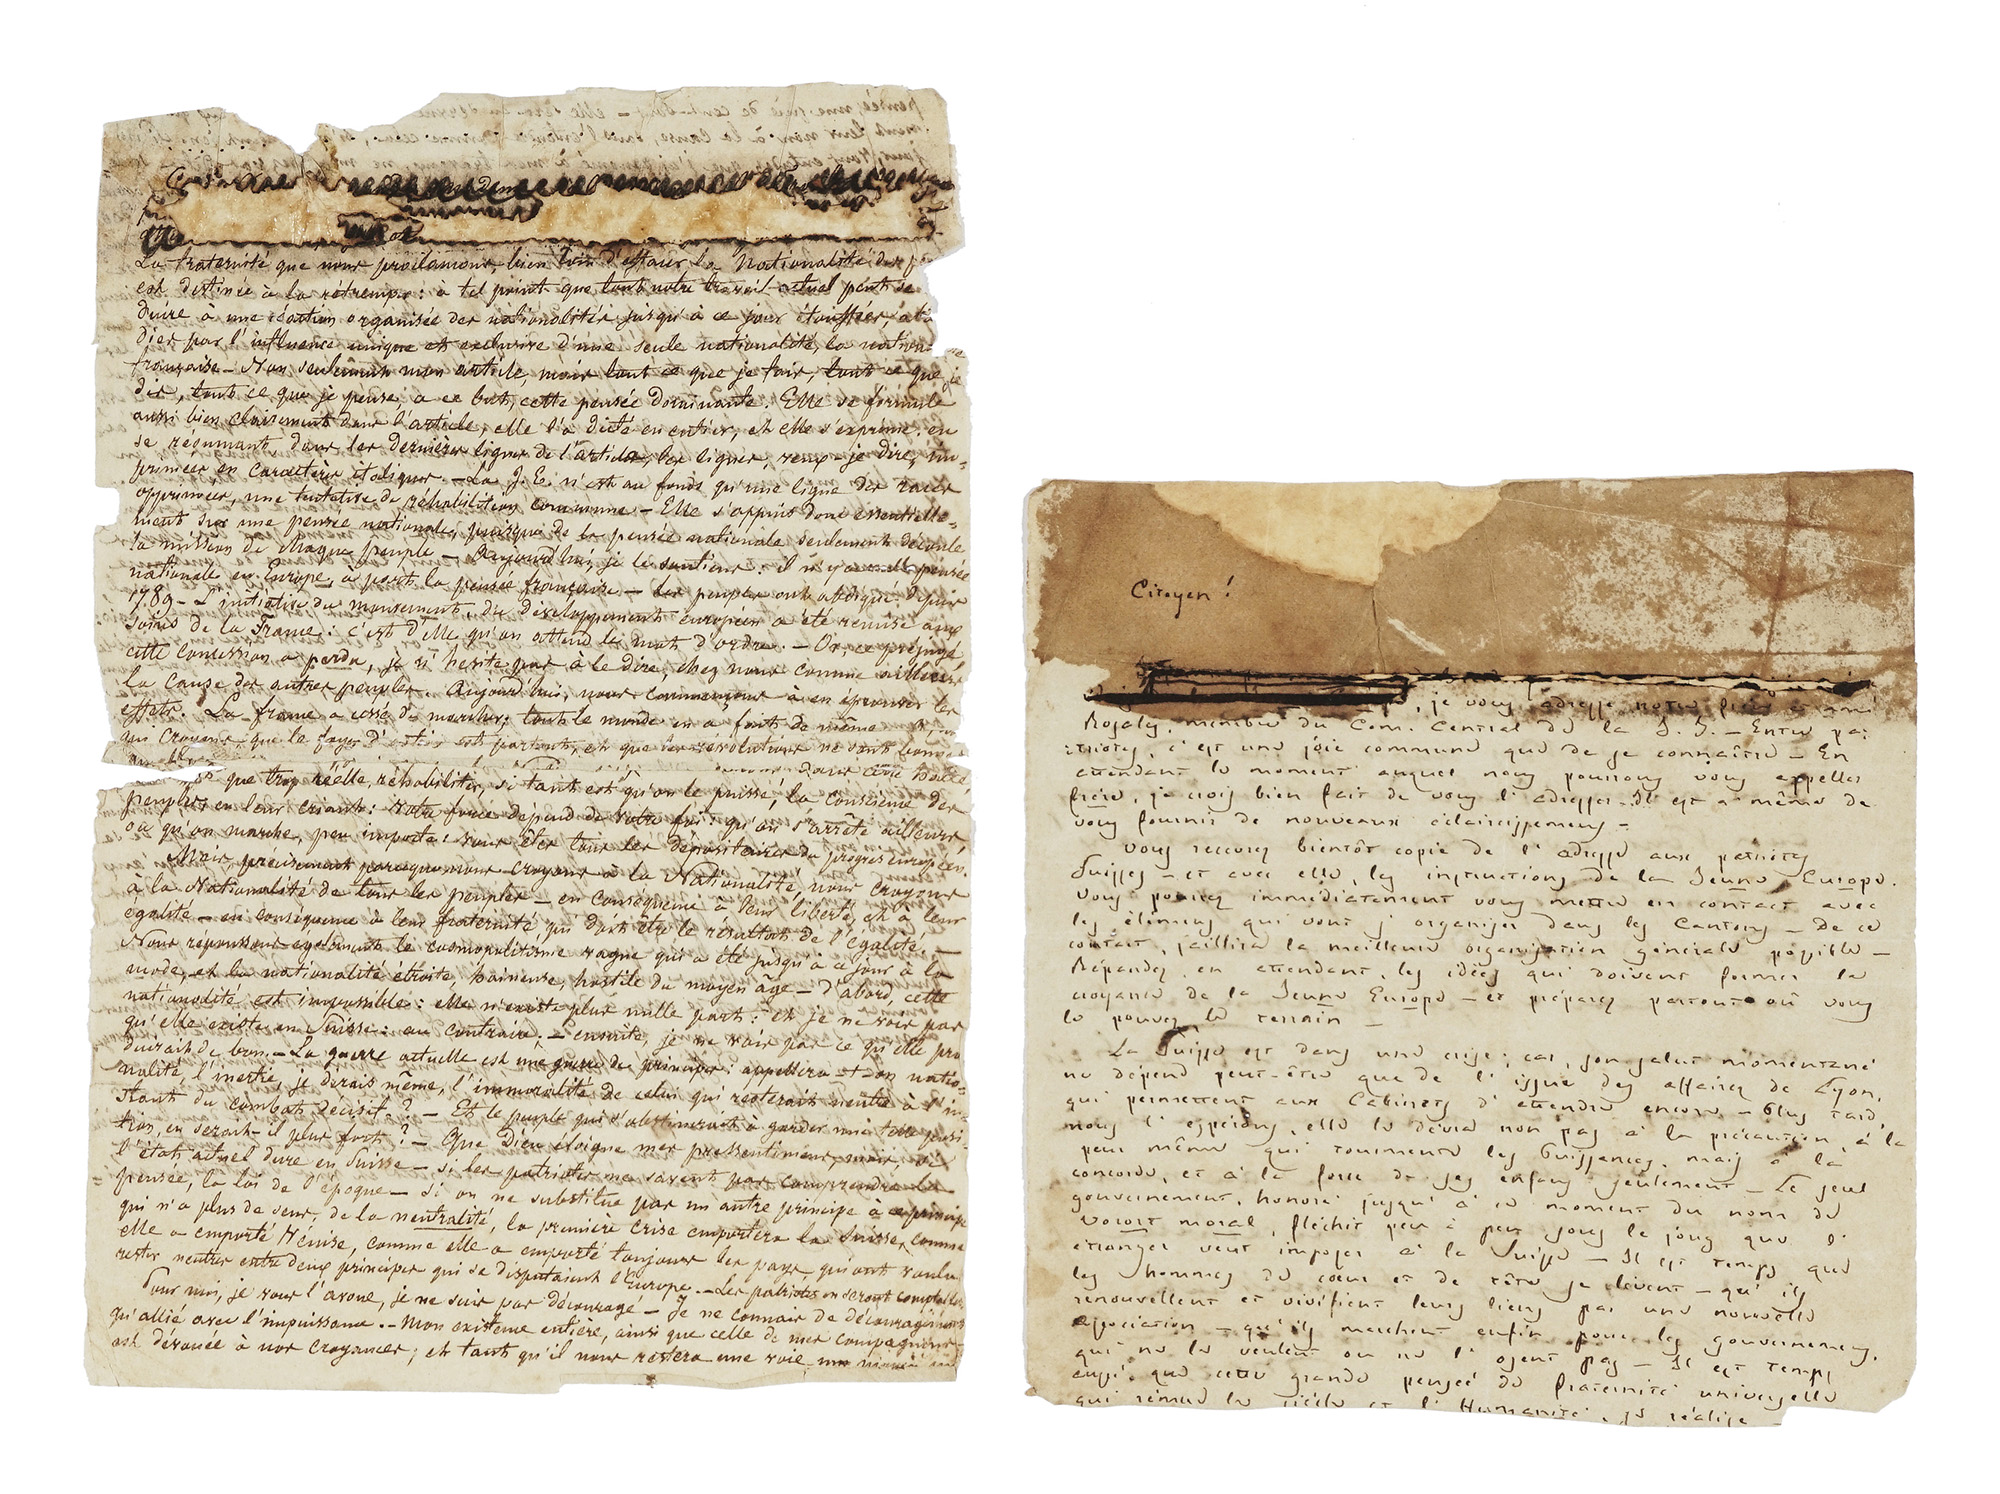 La fraternité que nous proclamons, bien loin d'effacer la Nationalité des
est destinée à la rétremper: à tel point que tout notre travail actuel peut se
duire à une réaction organisée des nationalités jusqu'à ce jour étouffées,
par l'influence unique et exclusive d'une seule nationalité, la nation
française — Non seulement mon article, mais tout ce que je fais, tout ce que je
dis, tout ce que je pense, a ce but, cette pensée dominante. Elle se formule
aussi bien clairement dans l'article, elle l'a dicté en entier, et elle s'exprime en
se résumant dans les dernières lignes de l'article, les lignes, veux-je dire, im-
primées en caractères italiques. — La J. E. n'est au fonds qu'une ligue des races
opprimées, une tentative de réhabilition commune — Elle s'appuie donc essentielle-
ment sur une pensée nationale, puisque de la pensée nationale seulement découle
la mission de chaque peuple — Aujourd'hui, je le soutiens: il n'y a nulle pensée
nationale en Europe, à part la pensée française — les peuples ont abdiqué depuis
1789 — L'initiative du mouvement, du développement européen a été remise aux
soins de la France: c'est d'elle qu'on attend le mot d'ordre. — Or ce préjugé
cette concession a perdu, je n'hésite pas à le dire, chez nous comme ailleurs
la cause des autres peuples. Aujourd'hui, nous commençons à en éprouver les
effets. La france a cessé de marcher: tout le monde en a fait de même
qui croyons, que le foyer d'
que trop réelle, réhabiliter, si tant est qu'on le puisse, la conscience des
peuples en leur criant: votre force dépend de votre foi: qu'on s'arrête ailleurs
ou qu'on marche, peu importe: vous êtes tous les dépositaires du progrès européen.
Mais, précisément parceque nous croyons à la Nationalité, nous croyons
à la Nationalité de tous les peuples — en conséquence à leur liberté, et à leur
égalité — en conséquence à leur fraternité, qui doit être le résultat de l'égalité. —
Nous repoussons également le cosmopolitisme vague qui a été jusqu'à ce jour à la
mode, et la nationalité étroite, haineuse, hostile du moyen âge — d'abord, cette
nationalité est impossible: elle n'existe plus nulle part: et je ne vois pas
qu'elle existe en Suisse: au contraire. — ensuite, je ne vois pas ce qu'elle pro
duirait de bon. — La guerre actuelle est une guerre de principes: appellera-t-on natio-
nalité, l'inertie, je dirais même, l'immoralité de celui qui resterait neutre à l'in-
stant du combat décisif? — Et le peuple qui s'obstinerait à garder une telle posi-
tion, en serait-il plus fort? — Que Dieu éloigne mes pressentimens, mais, si
l'état actuel dure en Suisse — si les patriotes ne savent pas comprendre la
pensée, la loi de l'époque — Si on ne substitue pas un autre principe à ce principe
qui n'a plus de sens, de la neutralité, la première crise emportera la Suisse, comme
elle a emporté Venise, comme elle a emporté toujours les pays, qui ont voulu
rester neutres entre deux principes qui se disputaient l'Europe. — Les patriotes en seront comptables.
Pour moi, je vous l'avoue, je ne suis pas découragé — Je ne connais de découragement
qu'allié avec l'impuissance. — Mon existence entière, ainsi que celle de mes compagnons
est dévouée à nos croyances; et tant qu'il nous restera une voie,
Citoyen!
, je vous adresse notre frère et ami
Rosaly, membre du Com. Central de la J. S. — Entre pa-
triotes, c'est une joie commune que de se connaître — En
attendant le moment auquel nous pourrons vous appeller
frère, je crois bien fait de vous l'adresser. Il est à même de
vous fournir de nouveaux éclaircissemens —
Vous recevrez bientôt copie de l'adresse aux patriotes
Suisses — et avec elle, les instructions de la Jeune Europe.
Vous pourrez immédiatement vous mettre en contact avec
les élémens qui vont s'organiser dans les Cantons — De ce
contact, jaillira la meilleure organisation générale possible —
Répandez en attendant, les idées qui doivent former la
croyance de la Jeune Europe — et préparez partout où vous
le pouvez le terrain —
La Suisse est dans une crise; car, son salut momentané
ne dépend peut-être que de l'issue des affaires de Lyon,
qui permettent aux Cabinets d'attendre encore — Plus tard,
nous l'espérons, elle le devra non pas à la précaution, à la
peur même qui tourmente les Puissances, mais à la
concorde, et à la force de ses enfans seulement — Le seul
gouvernement, honoré jusqu'à ce moment du nom de
Vorort moral, fléchit peu à peu sous le joug que l'
étranger veut imposer à la Suisse — Il est temps que
les hommes de cœur et de tête se lèvent — qu'ils
renouvellent et vivifient leurs liens par une nouvelle
association — qu'ils marchent enfin pour les gouvernemens,
qui ne le veulent ou ne l'osent pas — Il est temps
aussi, que cette grande pensée de fraternité universelle
qui rémue le siècle et l'Humanité, se réalise —